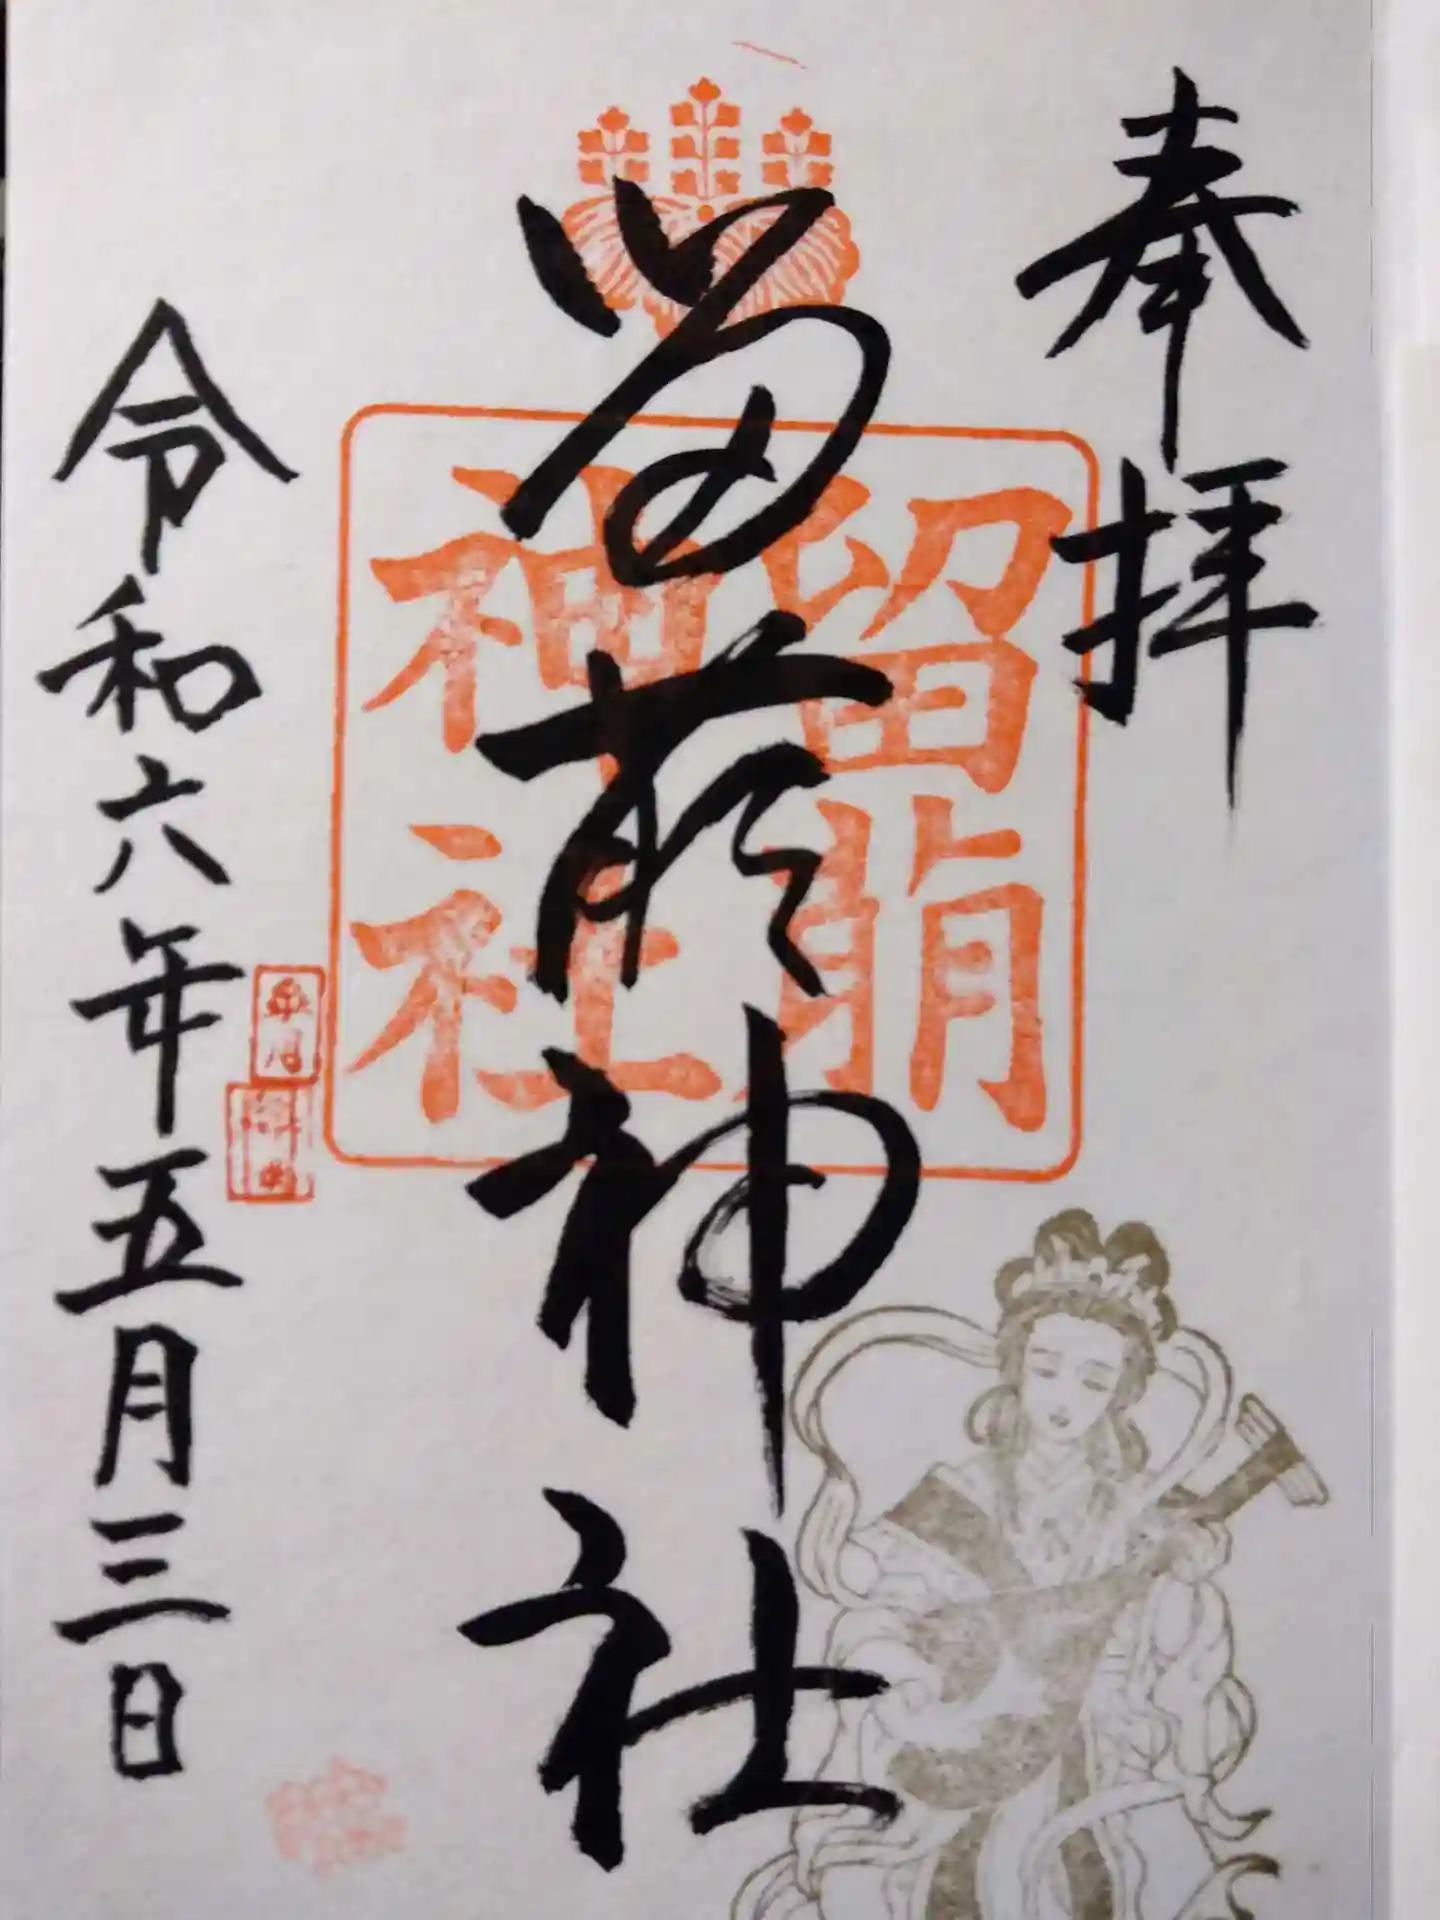 奉拝
留萌神社
留萌
神社
令和六年五月三日